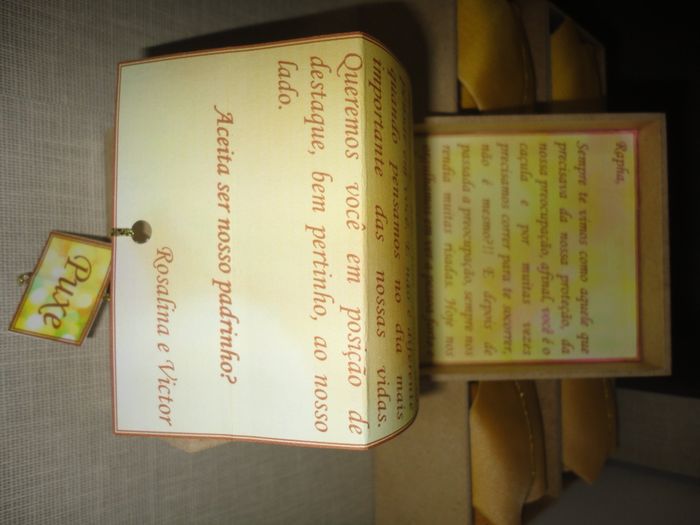 Rapha,
Sempre te vimos como aquele que
precisava da nossa proteção, da
nossa preocupação, afinal, você é o
caçula e por muitas vezes
precisamos correr para te socorrer,
não é mesmo?!! E depois de
passada a preocupação, sempre nos
rendia muitas risadas. Hoje nos
quando pensamos no dia mais
importante das nossas vidas.
Queremos você em posição de
destaque, bem pertinho, ao nosso
lado.
Aceita ser nosso padrinho?
Rosalina e Victor
Puxe